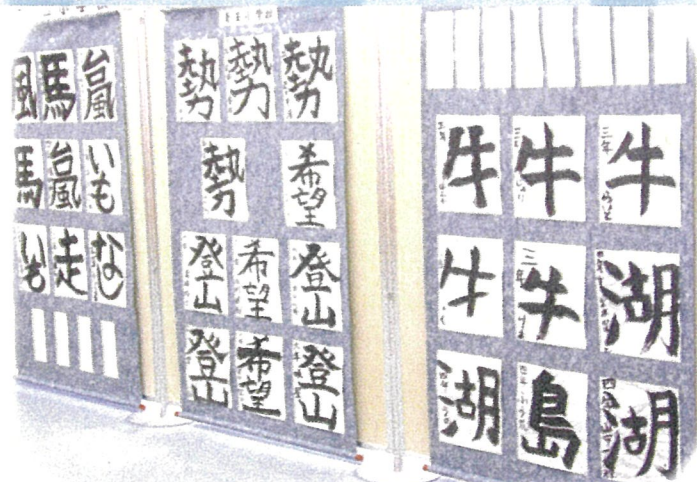 風 馬 台風
馬 台風 いも
いも 走 なし
勢 勢 勢
勢 希望
登山 希望 登山
登山 希望 登山
牛 牛 三年 牛
牛 三年 牛 湖
湖 島 湖